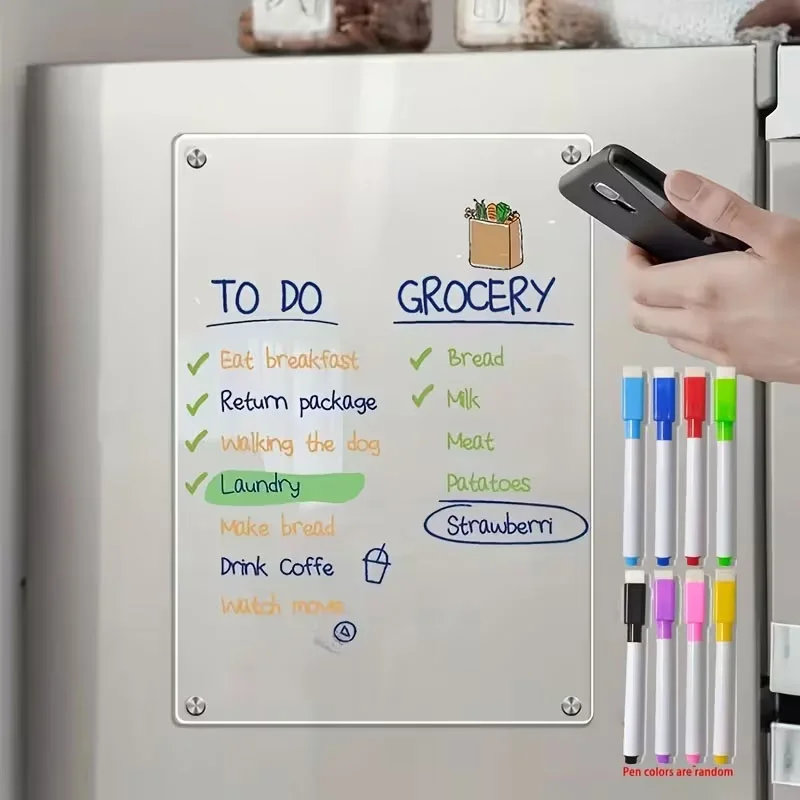 TO DO
Eat breakfast
Return package
Walking the dog
Laundry
Make bread
Drink Coffe
Watch movie
GROCERY
Bread
Milk
Meat
Patatoes
Strawberri
Pen colors are random